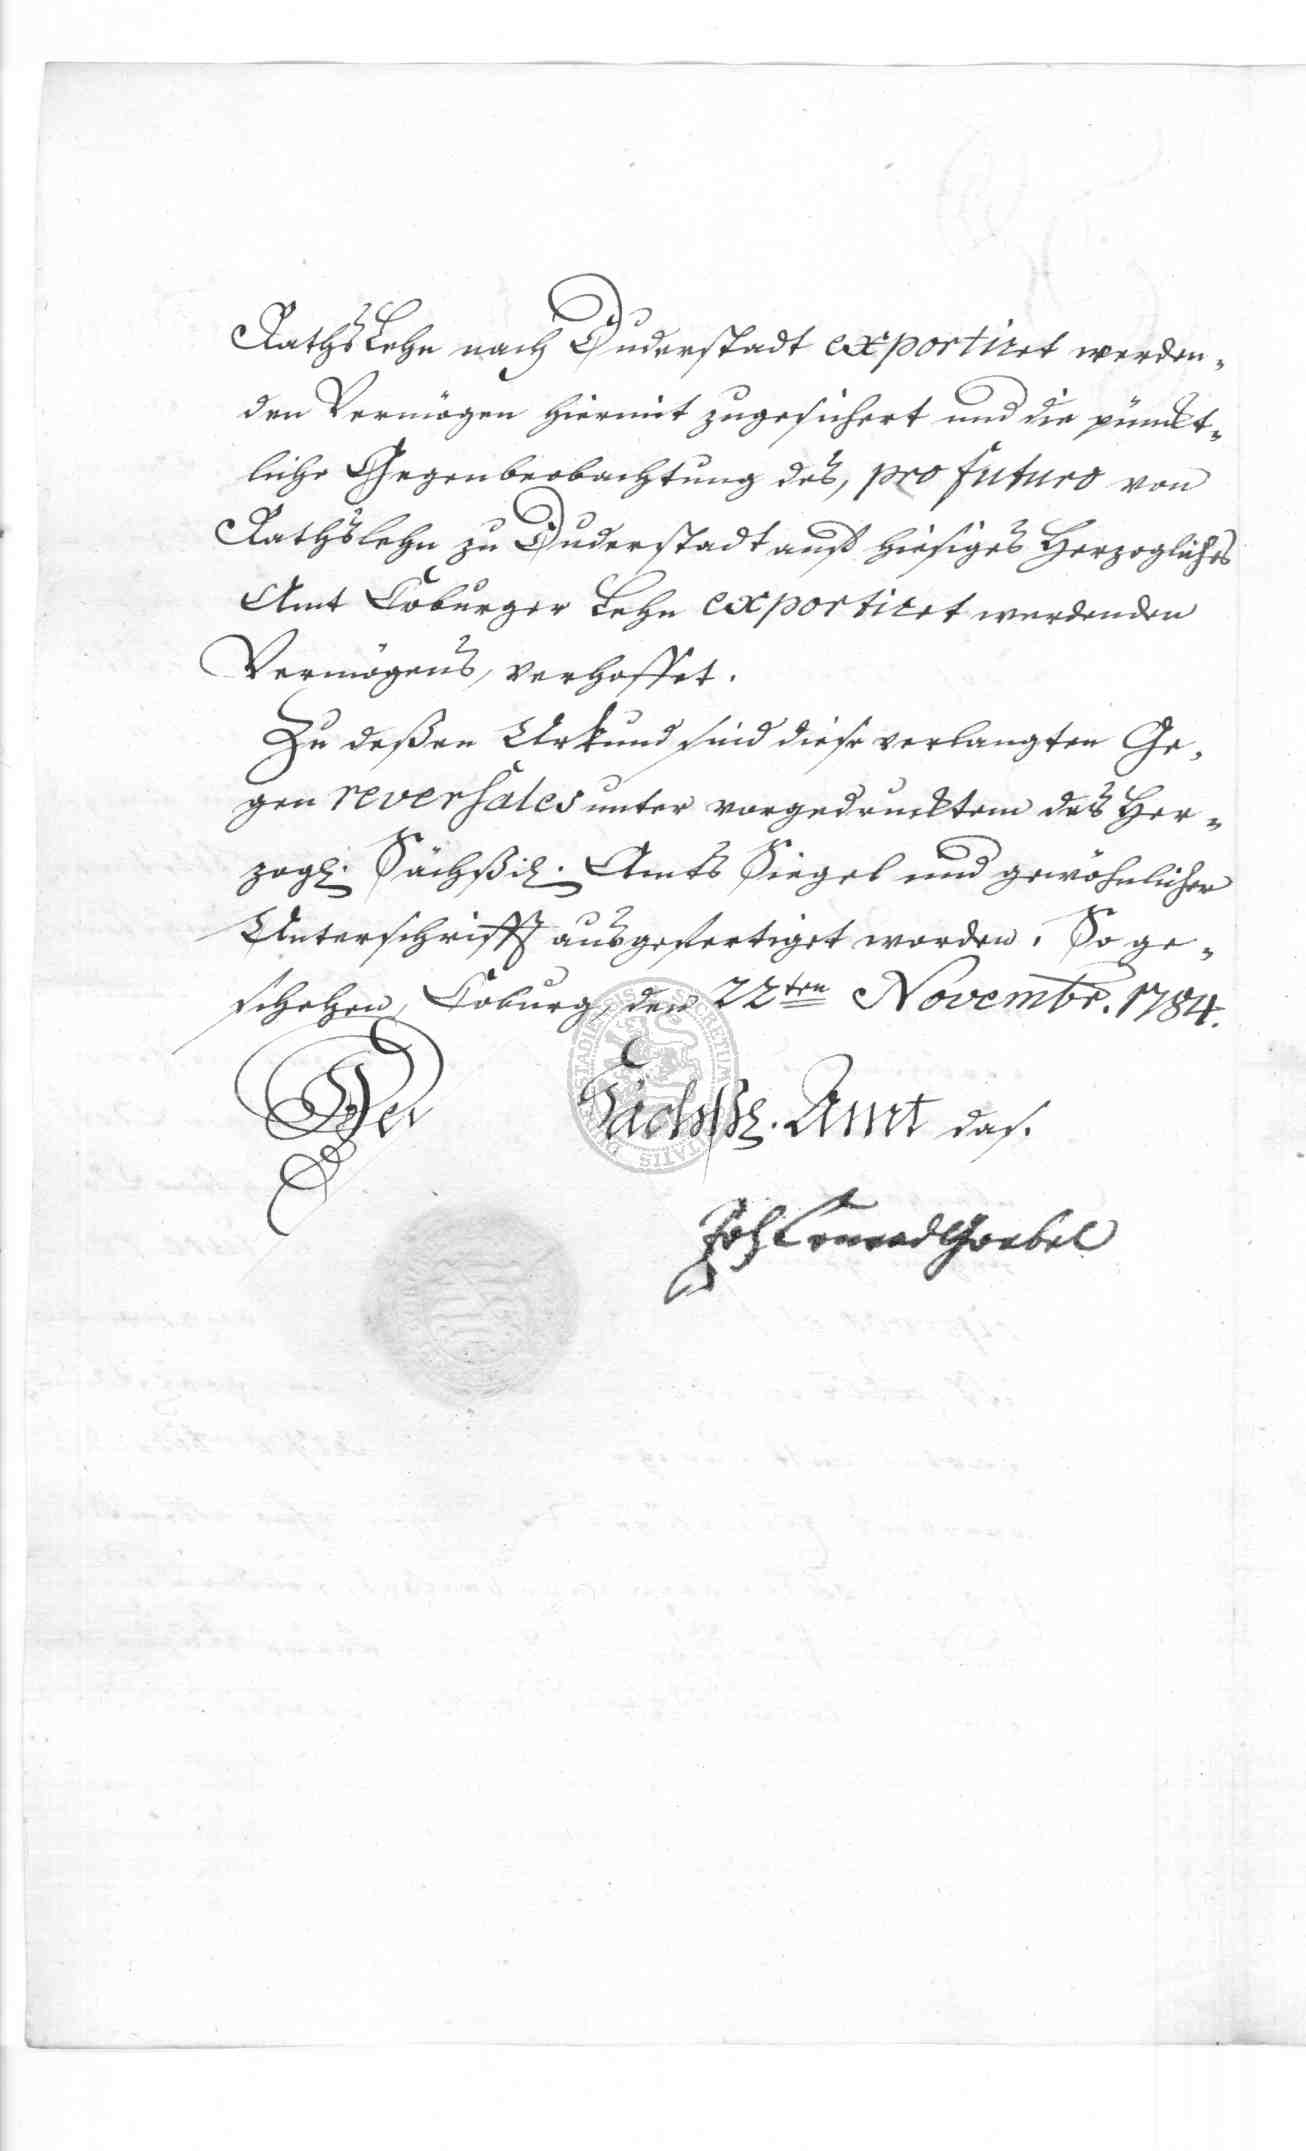 RathsLehn nach Duderstadt exportiret werden-
den Vermögen hiermit zugesichert und die pünckt-
liche Gegenbeobachtung des, pro futuro von
Rathslehn zu Duderstadt auß hiesiges Herzogliches
Amt Coburger Lehn exportiret werdenden
Vermögens, verhoffet.
Zu deßen Urkund sind diese verlangten Ge-
gen reversales unter vorgedrucktem des Her-
zogl. Sächßil. Amts Siegel und gewöhnlicher
Unterschrifft ausgefertiget worden. So ge-
schehen, Coburg, den 22ten Novembr. 1784.
Der Sächßl. Amt das.
Joh Conrad Goebel